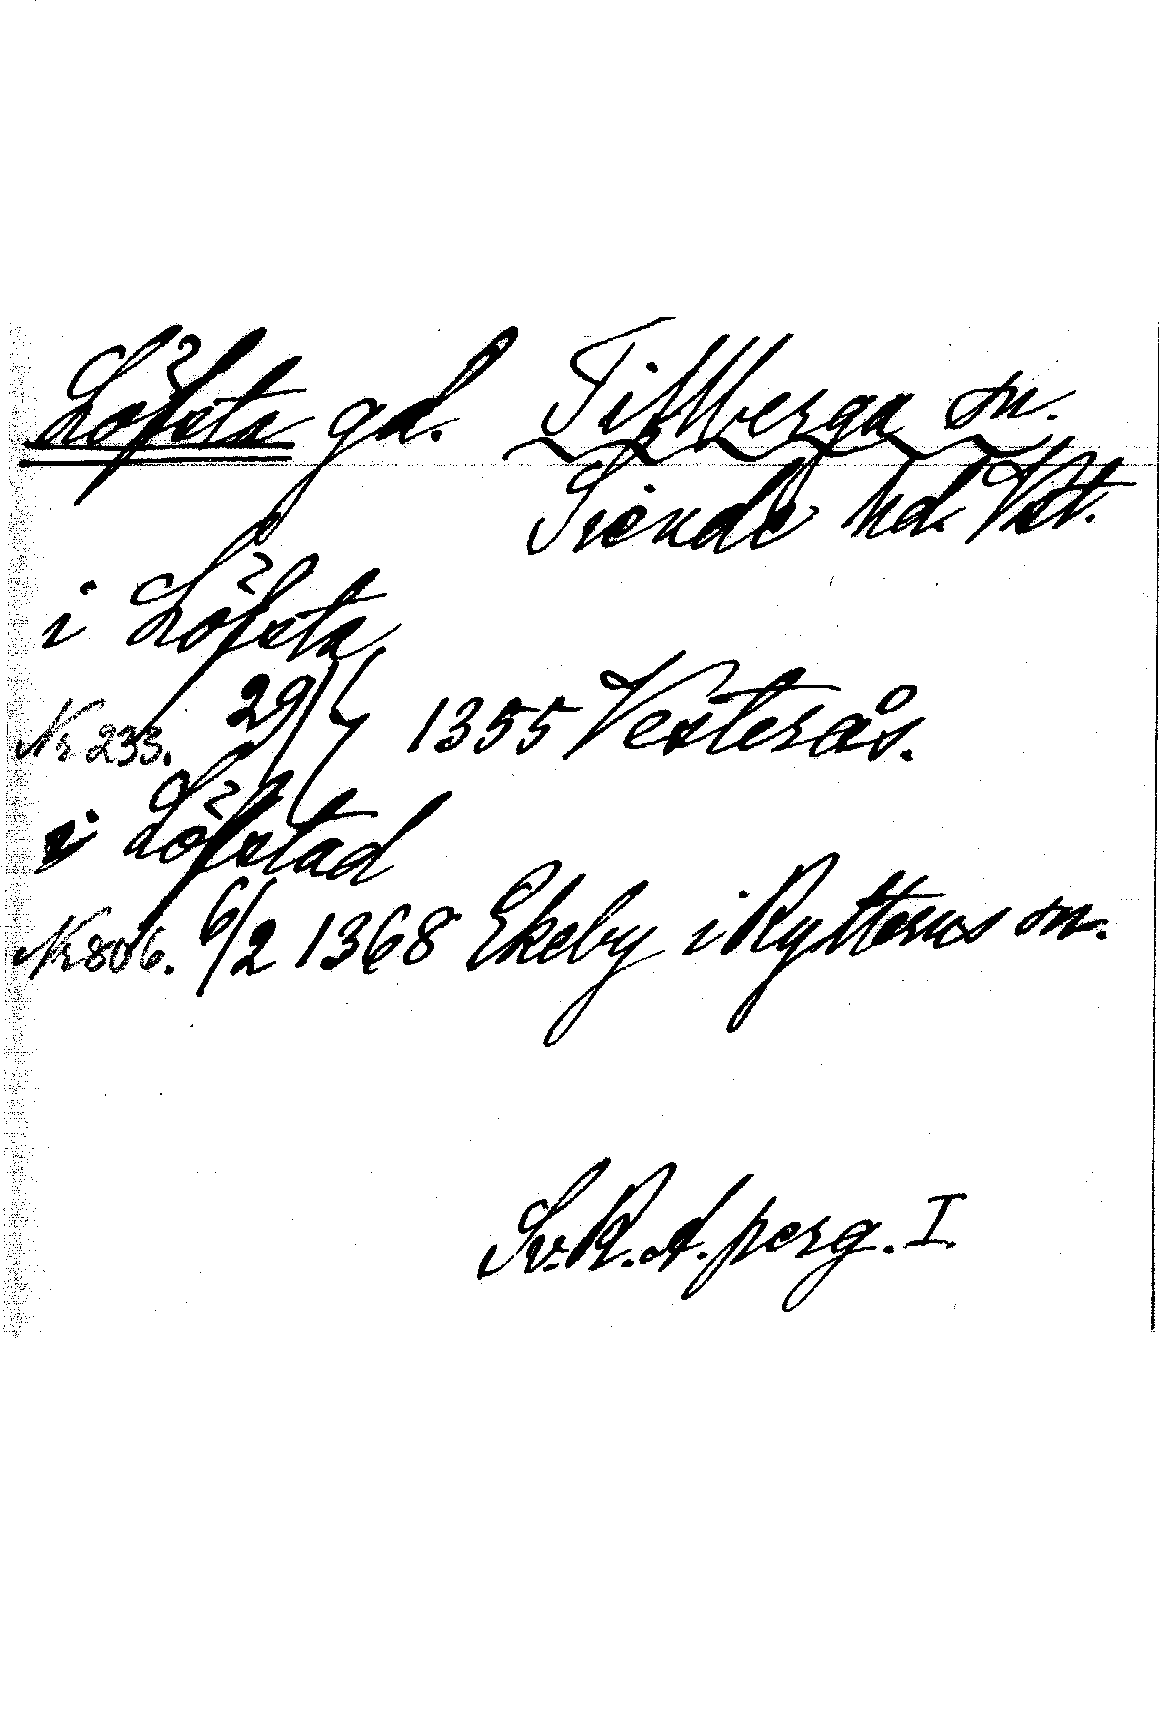 Löfsta gd. Tillberga sn.
Siende hd. Vst.
i Löfsta
Nr 233. 29/7 1355 Vesterås.
i Löfstad
Nr 806. 6/2 1368 Ekeby i Rytterns sn.
Sv. R. A. perg. I.